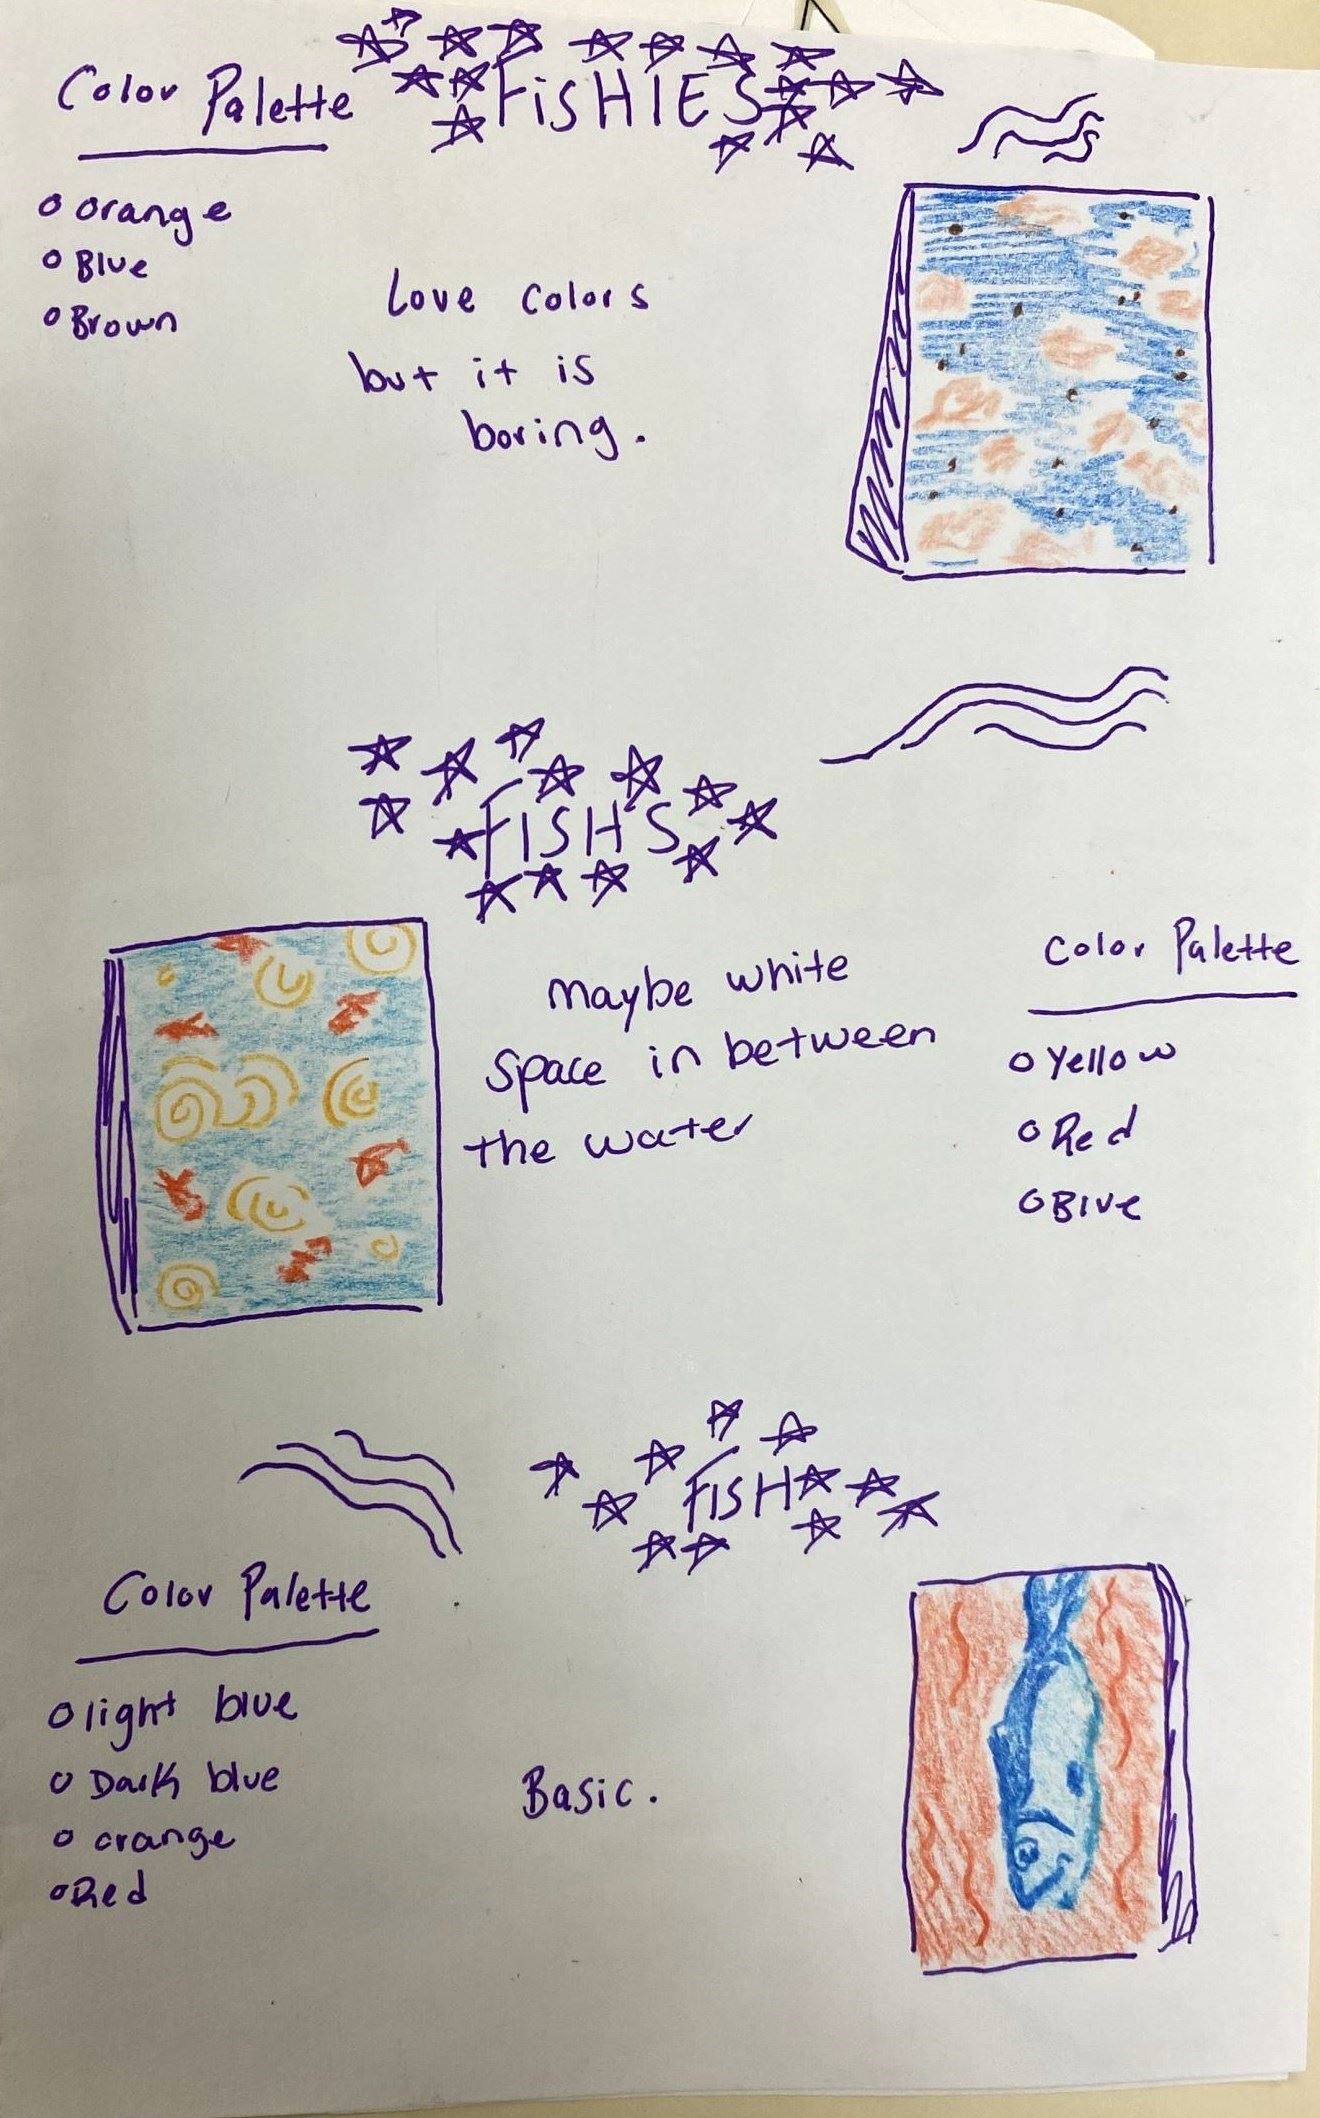 Color Palette
FiSHIES
o orange
o Blue
o Brown
Love colors
but it is
boring.
FISH'S
Maybe white
space in between
the water
Color Palette
o Yellow
o Red
o Blue
FISH
Color Palette
o light blue
o Dark blue
o orange
o Red
Basic.